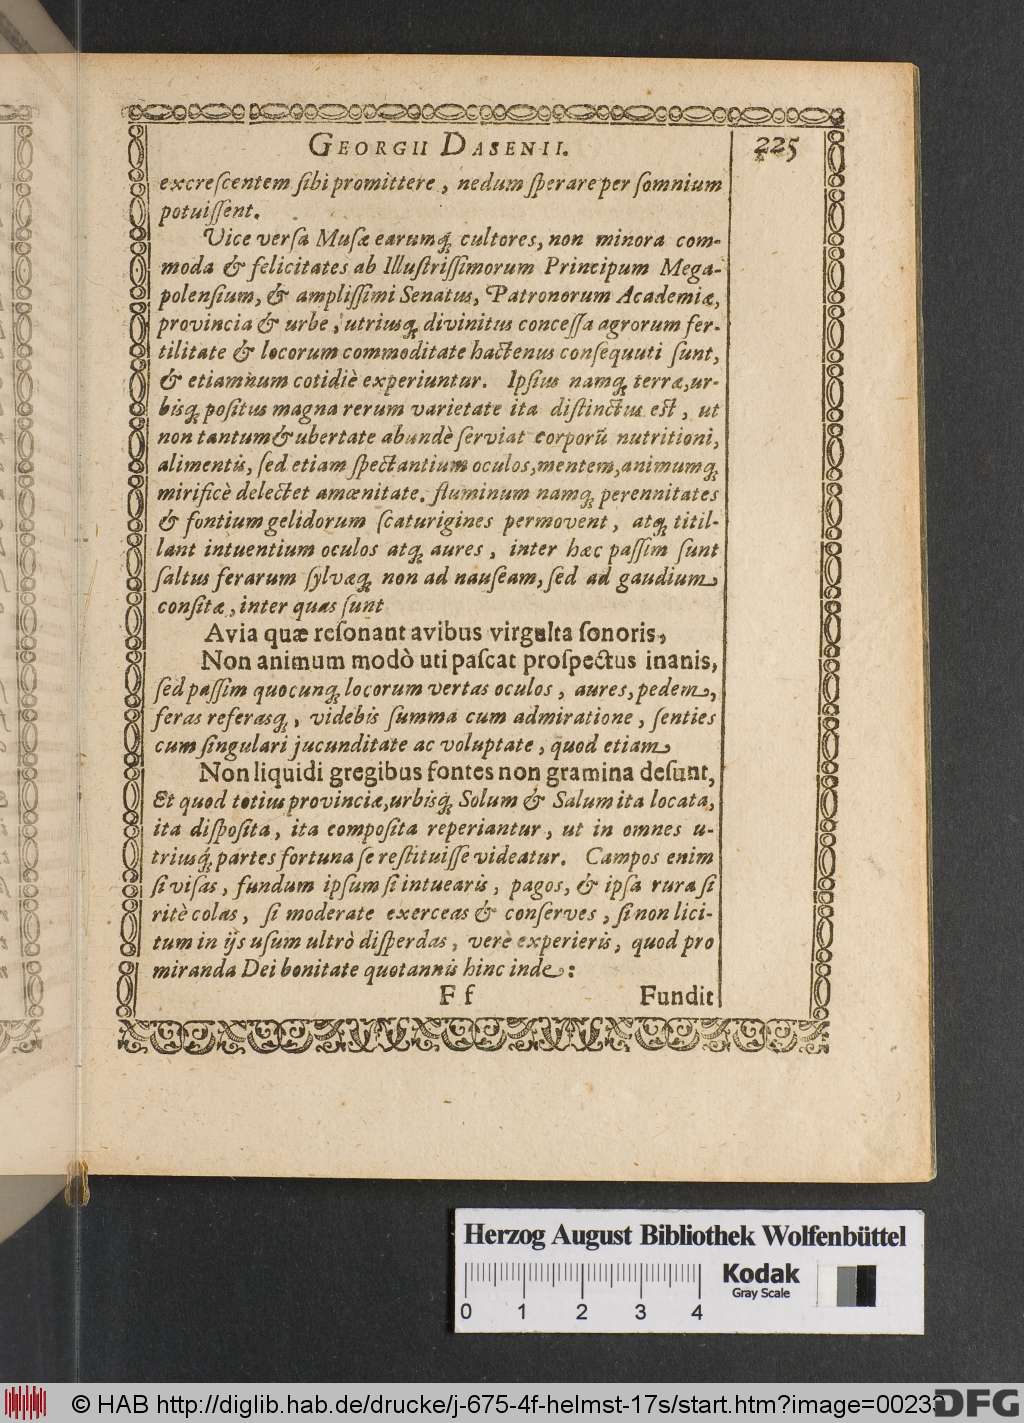 GEORGII DASENII.
225
excreſcentem ſibi promittere, nedum ſperare per ſomnium
potuiſſent.
Vice verſa Muſæ earumq́; cultores, non minora com-
moda & felicitates ab Illuſtriſſimorum Principum Mega-
polenſium, & ampliſſimi Senatus, Patronorum Academiæ,
provincia & urbe, utriusq; divinitus conceſſa agrorum fer-
tilitate & locorum commoditate hactenus conſequuti ſunt,
& etiamnum cotidiè experiuntur. Ipſius namq; terræ, ur-
bisq; poſitus magna rerum varietate ita diſtinctus est, ut
non tantum & ubertate abundè ſerviat corporũ nutritioni,
alimentis, ſed etiam ſpectantium oculos, mentem, animumq;
mirificè delectet amœnitate. fluminum namq; perennitates
& fontium gelidorum ſcaturigines permovent, atq; titil-
lant intuentium oculos atq; aures, inter hæc paſſim ſunt
ſaltus ferarum ſylvæq; non ad nauſeam, ſed ad gaudium
conſitæ, inter quas ſunt
Avia quæ reſonant avibus virgulta ſonoris,
Non animum modò uti paſcat proſpectus inanis,
ſed paſſim quocunq; locorum vertas oculos, aures, pedem,
feras referasq;, videbis ſumma cum admiratione, ſenties
cum ſingulari jucunditate ac voluptate, quod etiam
Non liquidi gregibus fontes non gramina deſunt,
Et quod totius provinciæ, urbisq́; Solum & Salum ita locata,
ita diſpoſita, ita compoſita reperiantur, ut in omnes u-
triusq́; partes fortuna ſe reſtituiſſe videatur. Campos enim
ſi viſas, fundum ipſum ſi intuearis, pagos, & ipſa rura ſi
ritè colas, ſi moderate exerceas & conſerves, ſi non lici-
tum in ijs uſum ultrò diſperdas, verè experieris, quod pro
miranda Dei bonitate quotannis hinc inde:
F f
Fundit
Herzog August Bibliothek Wolfenbüttel
Kodak
Gray Scale
0 1 2 3 4
© HAB http://diglib.hab.de/drucke/j-675-4f-helmst-17s/start.htm?image=00233
DFG